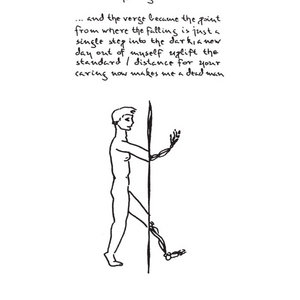 ... and the verge became the point
from where the falling is just a
single step into the dark, a new
day out of myself uplift the
standard / distance for your
caring now makes me a dead man